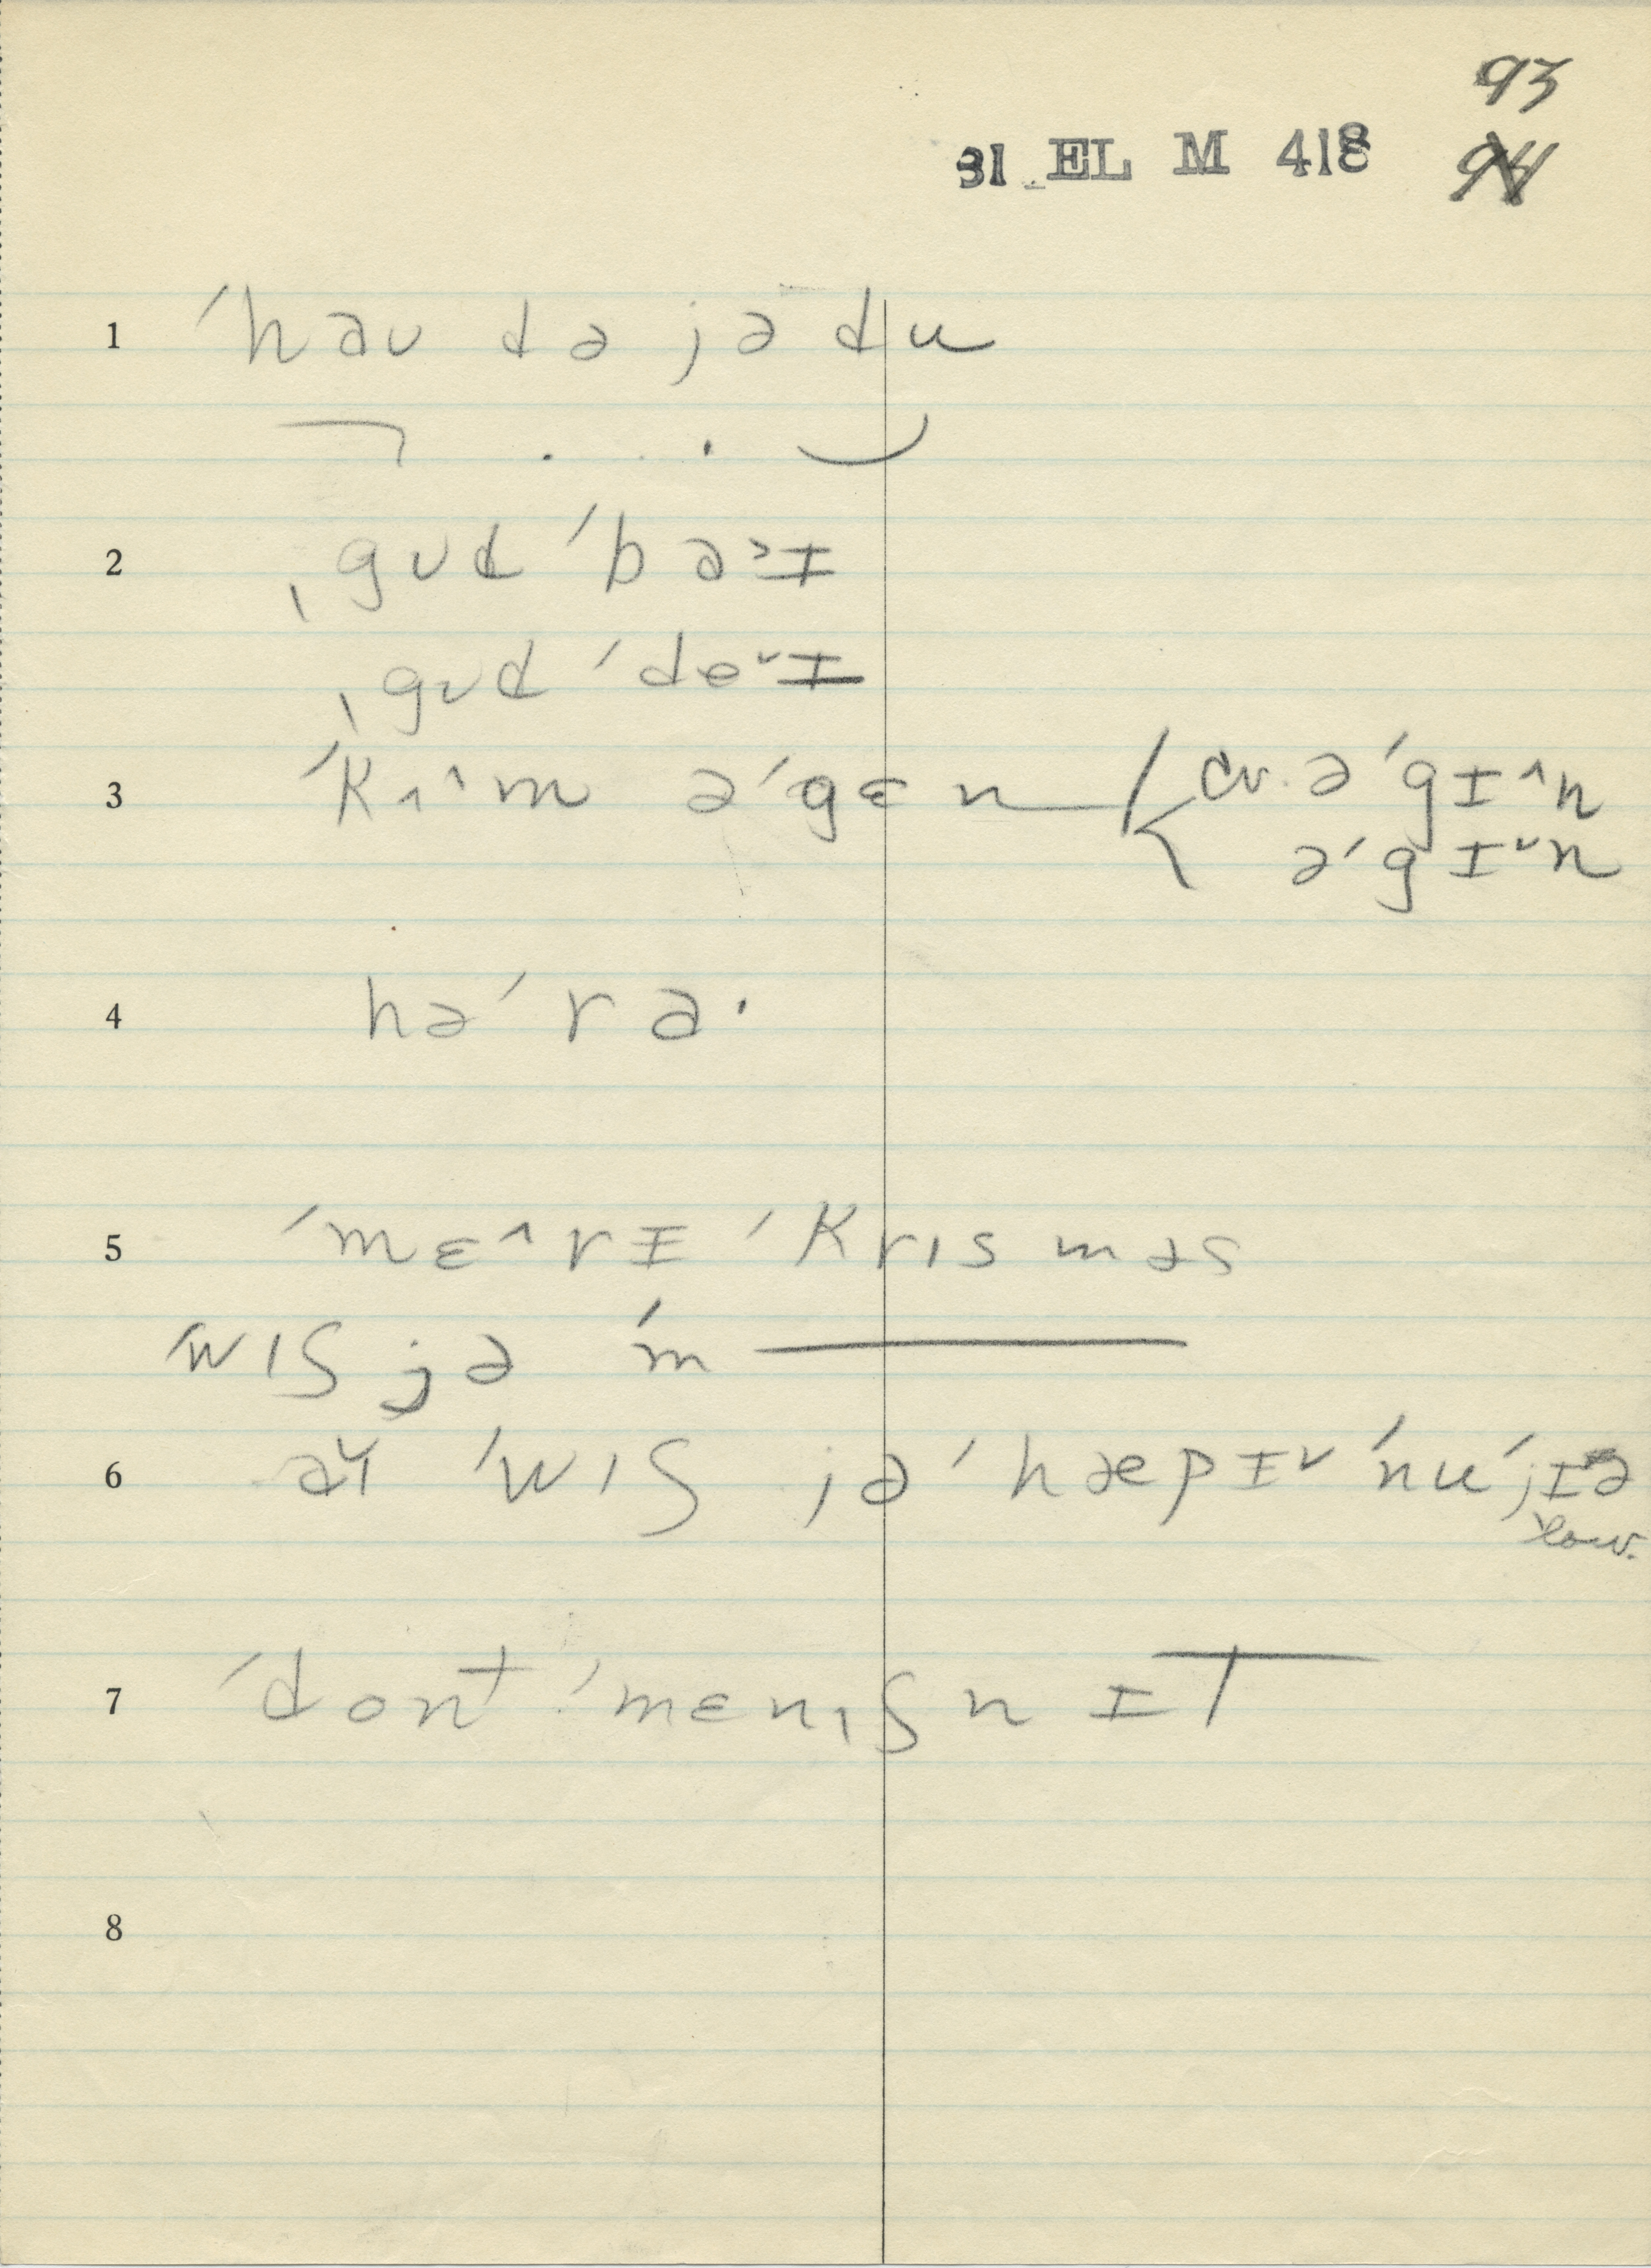 93
31 EL M 418 94
1 ˈhaʊ də jə du
2 ˌgʊd ˈbaɪ
ˌgʊd ˈdeˇɪ
3 ˈkʌ^m əˈgɛn cv. əˈgɪ^n
əˈgɪˇn
4 həˈra·
5 ˈmɛ^rɪ ˈkrɪsməs
ˈwɪʃ jə ˈm
6 aɪ ˈwɪʃ jə ˈhæpɪˇ ˈnu ˈjɪə
7 ˈdont ˈmenɪʃn ɪt
8